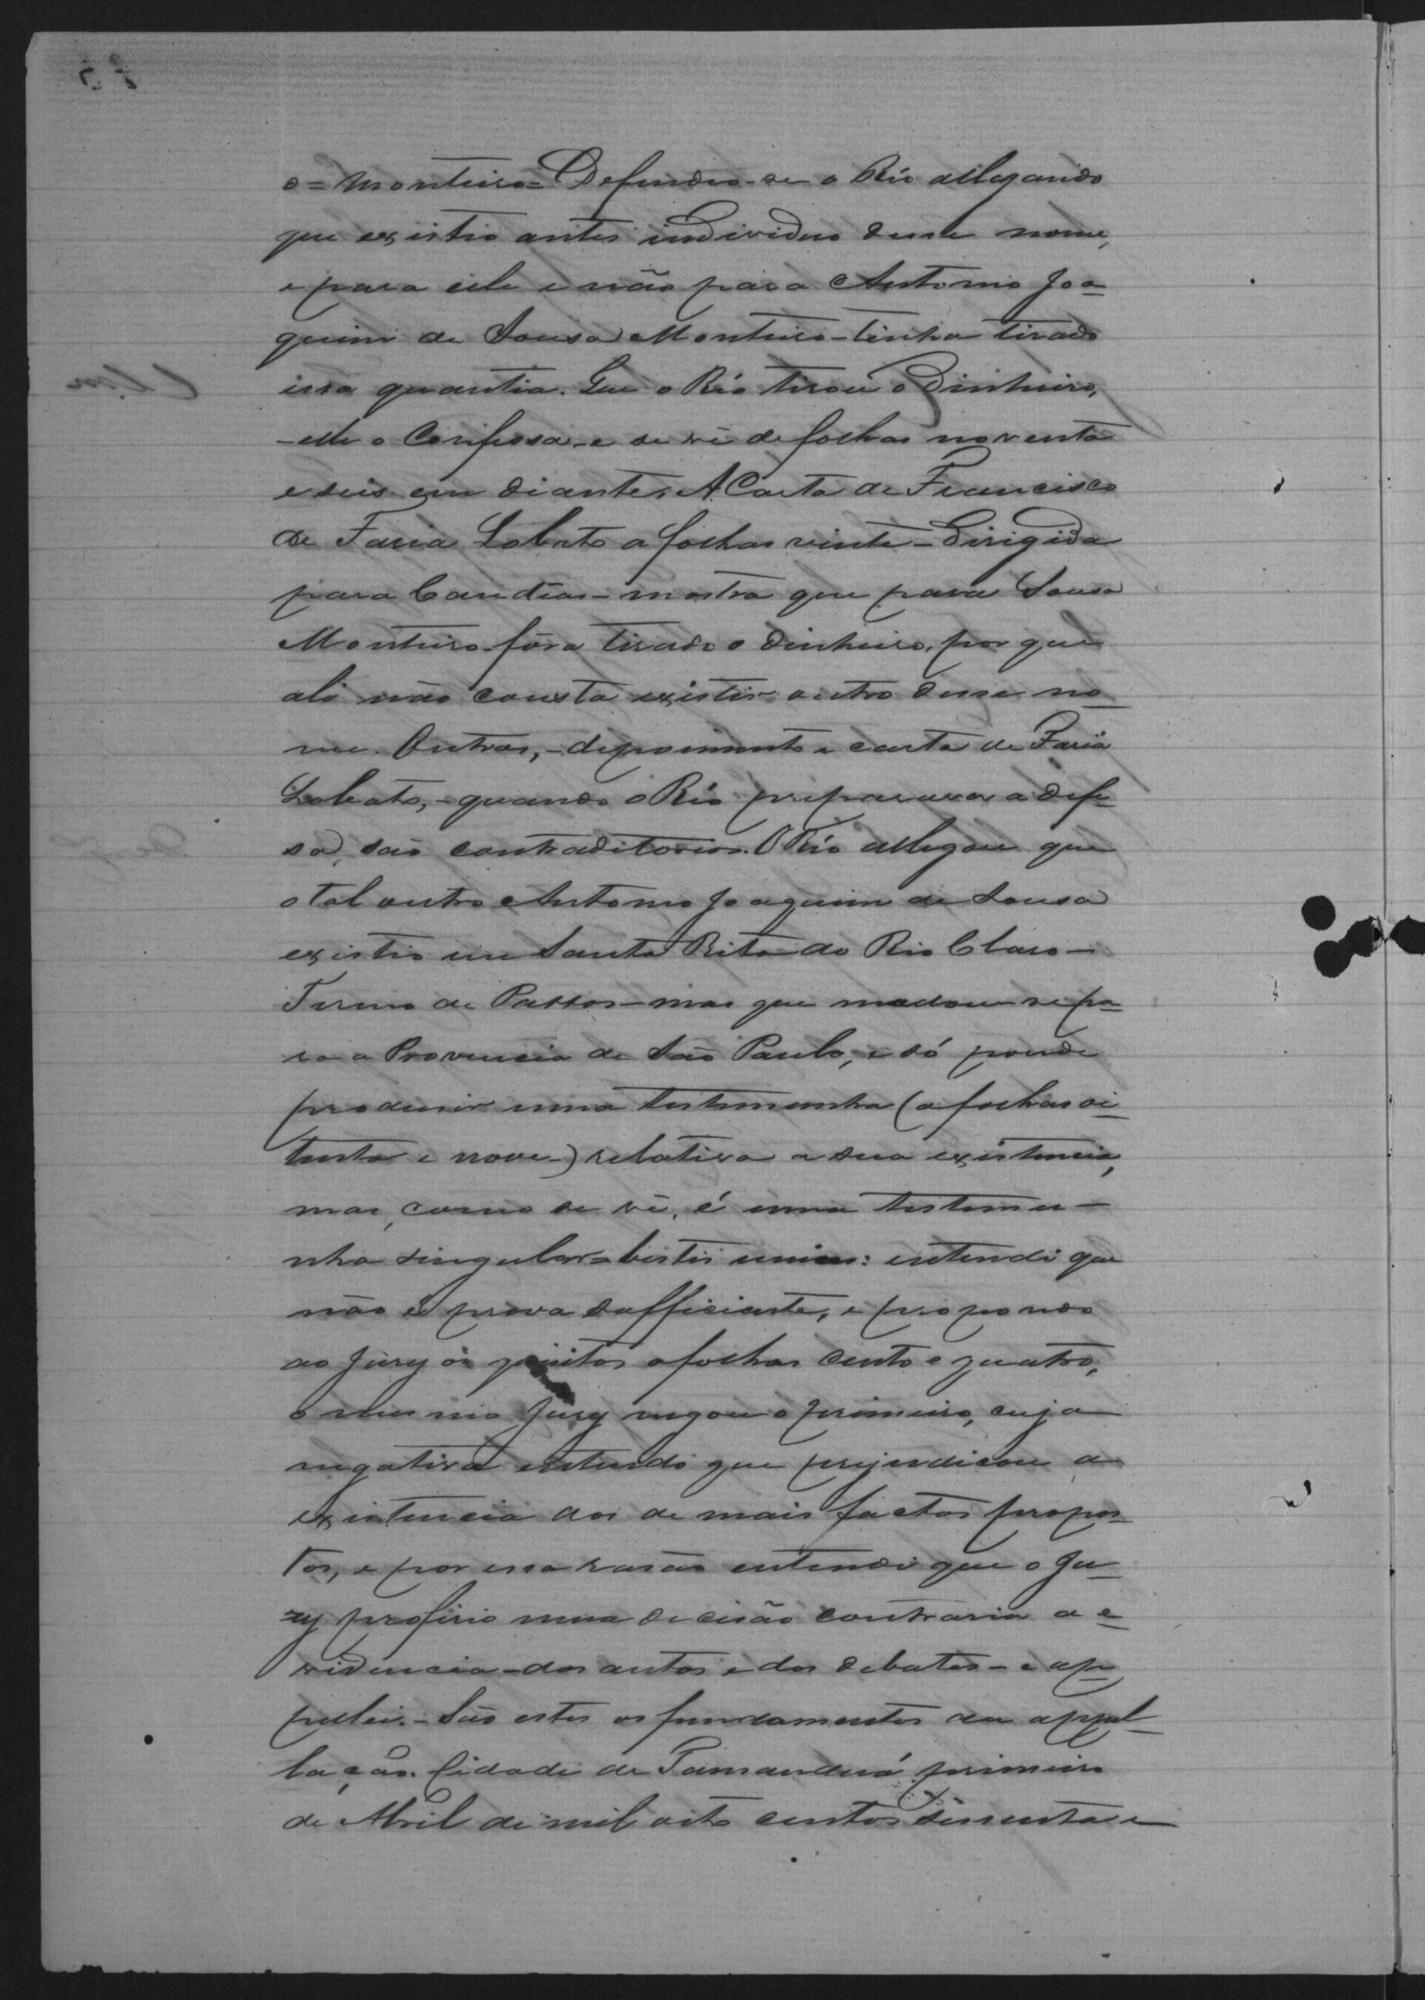 o = Monteiro = Defendeo-se o Réo allegando
que existio antes individuo desse nome,
e para elle e não para Antonio Joa-
quim de Sousa Monteiro - tinha tirado
essa quantia. Que o Réo tirou o dinheiro,
- elle o confessa - e se vê de folhas noventa
e seis em diante. A Carta de Francisco
de Faria Lobato a folhas vinte - dirigida
para Candeas - mostra que para Sousa
Monteiro fôra tirado o dinheiro, por que
ali não consta existir outro desse no-
me. Outros, - depoimento e carta de Faria
Lobato, - quando o Réo preparava a defe-
sa, são contraditorios. O Réo allegou que
o tal outro Antonio Joaquim de Sousa
existio em Santa Rita do Rio Claro -
Termo de Passos - mas que mudou-se pa-
ra a Provincia de São Paulo, e só poude
produsir uma testemunha (a folhas oi-
tenta e nove) relativa a sua existencia,
mas, como se vê, é uma testemu-
nha singular = testis unius: entendi que
não é prova sufficiente, e propondo
ao Jury os quesitos a folhas cento e quatro,
o mesmo Jury negou o primeiro, cuja
negativa entendo que prejudicou a
existencia dos de mais factos propos-
tos, e por essa rasão entendi que o Ju-
ry proferio uma decisão contraria a e-
videncia - dos autos e dos debates - e ap-
pellei. - São estes os fundamentos da appel-
lação. Cidade de Tamanduá primeiro
de Abril de mil oito centos sessenta e